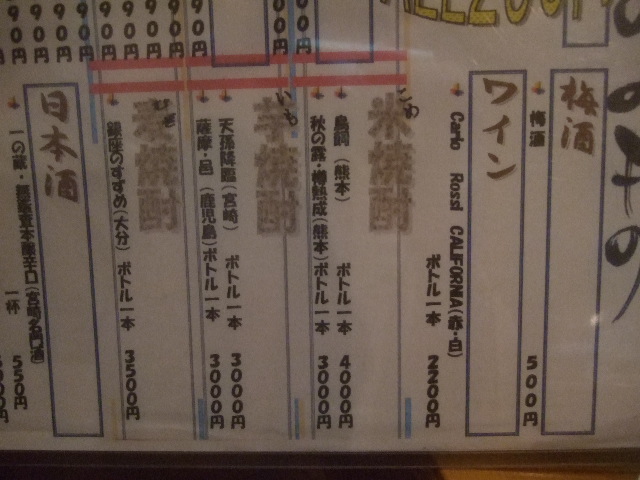 のみもの
梅酒
梅酒 500円
ワイン
Carlo Rossi CALIFORNIA(赤・白)
ボトル一本 2200円
こめ
米焼酎
鳥飼(熊本) ボトル一本 4000円
秋の露・樽熟成(熊本)ボトル一本 3000円
いも
芋焼酎
天孫降臨(宮崎) ボトル一本 3000円
薩摩・邑(鹿児島)ボトル一本 3000円
むぎ
麦焼酎
銀座のすずめ(大分) ボトル一本 3500円
日本酒
一の蔵・無鑑査本醸辛口(宮崎名門酒)
一杯 550円